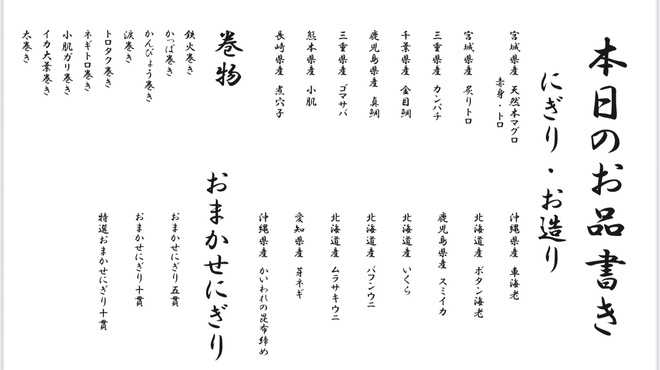 本日のお品書き
にぎり・お造り
宮城県産 天然本マグロ
赤身・トロ
宮城県産 炙りトロ
三重県産 カンパチ
千葉県産 金目鯛
鹿児島県産 真鯛
三重県産 ゴマサバ
熊本県産 小肌
長崎県産 煮穴子
沖縄県産 車海老
北海道産 ボタン海老
鹿児島県産 スミイカ
北海道産 いくら
北海道産 バフンウニ
北海道産 ムラサキウニ
愛知県産 芽ネギ
沖縄県産 かいわれの昆布締め
巻物
鉄火巻き
かっぱ巻き
かんぴょう巻き
涙巻き
トロタク巻き
ネギトロ巻き
小肌ガリ巻き
イカ大葉巻き
太巻き
おまかせにぎり
おまかせにぎり五貫
おまかせにぎり十貫
特選おまかせにぎり十貫